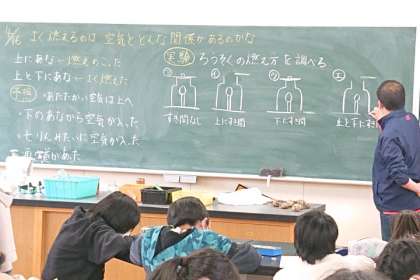 よく燃えるのは空気とどんな関係があるのかな
上にあな―燃えのこった
上と下にあな―よく燃えた
予想 ・あたたかい空気は上へ
・下のあなから空気が入った
空気が入った
があった
実験 ろうそくの燃え方を調べる
㋐ ㋑ ㋒ ㋓
すき間なし 上にすき間 下にすき間 上と下にすき間